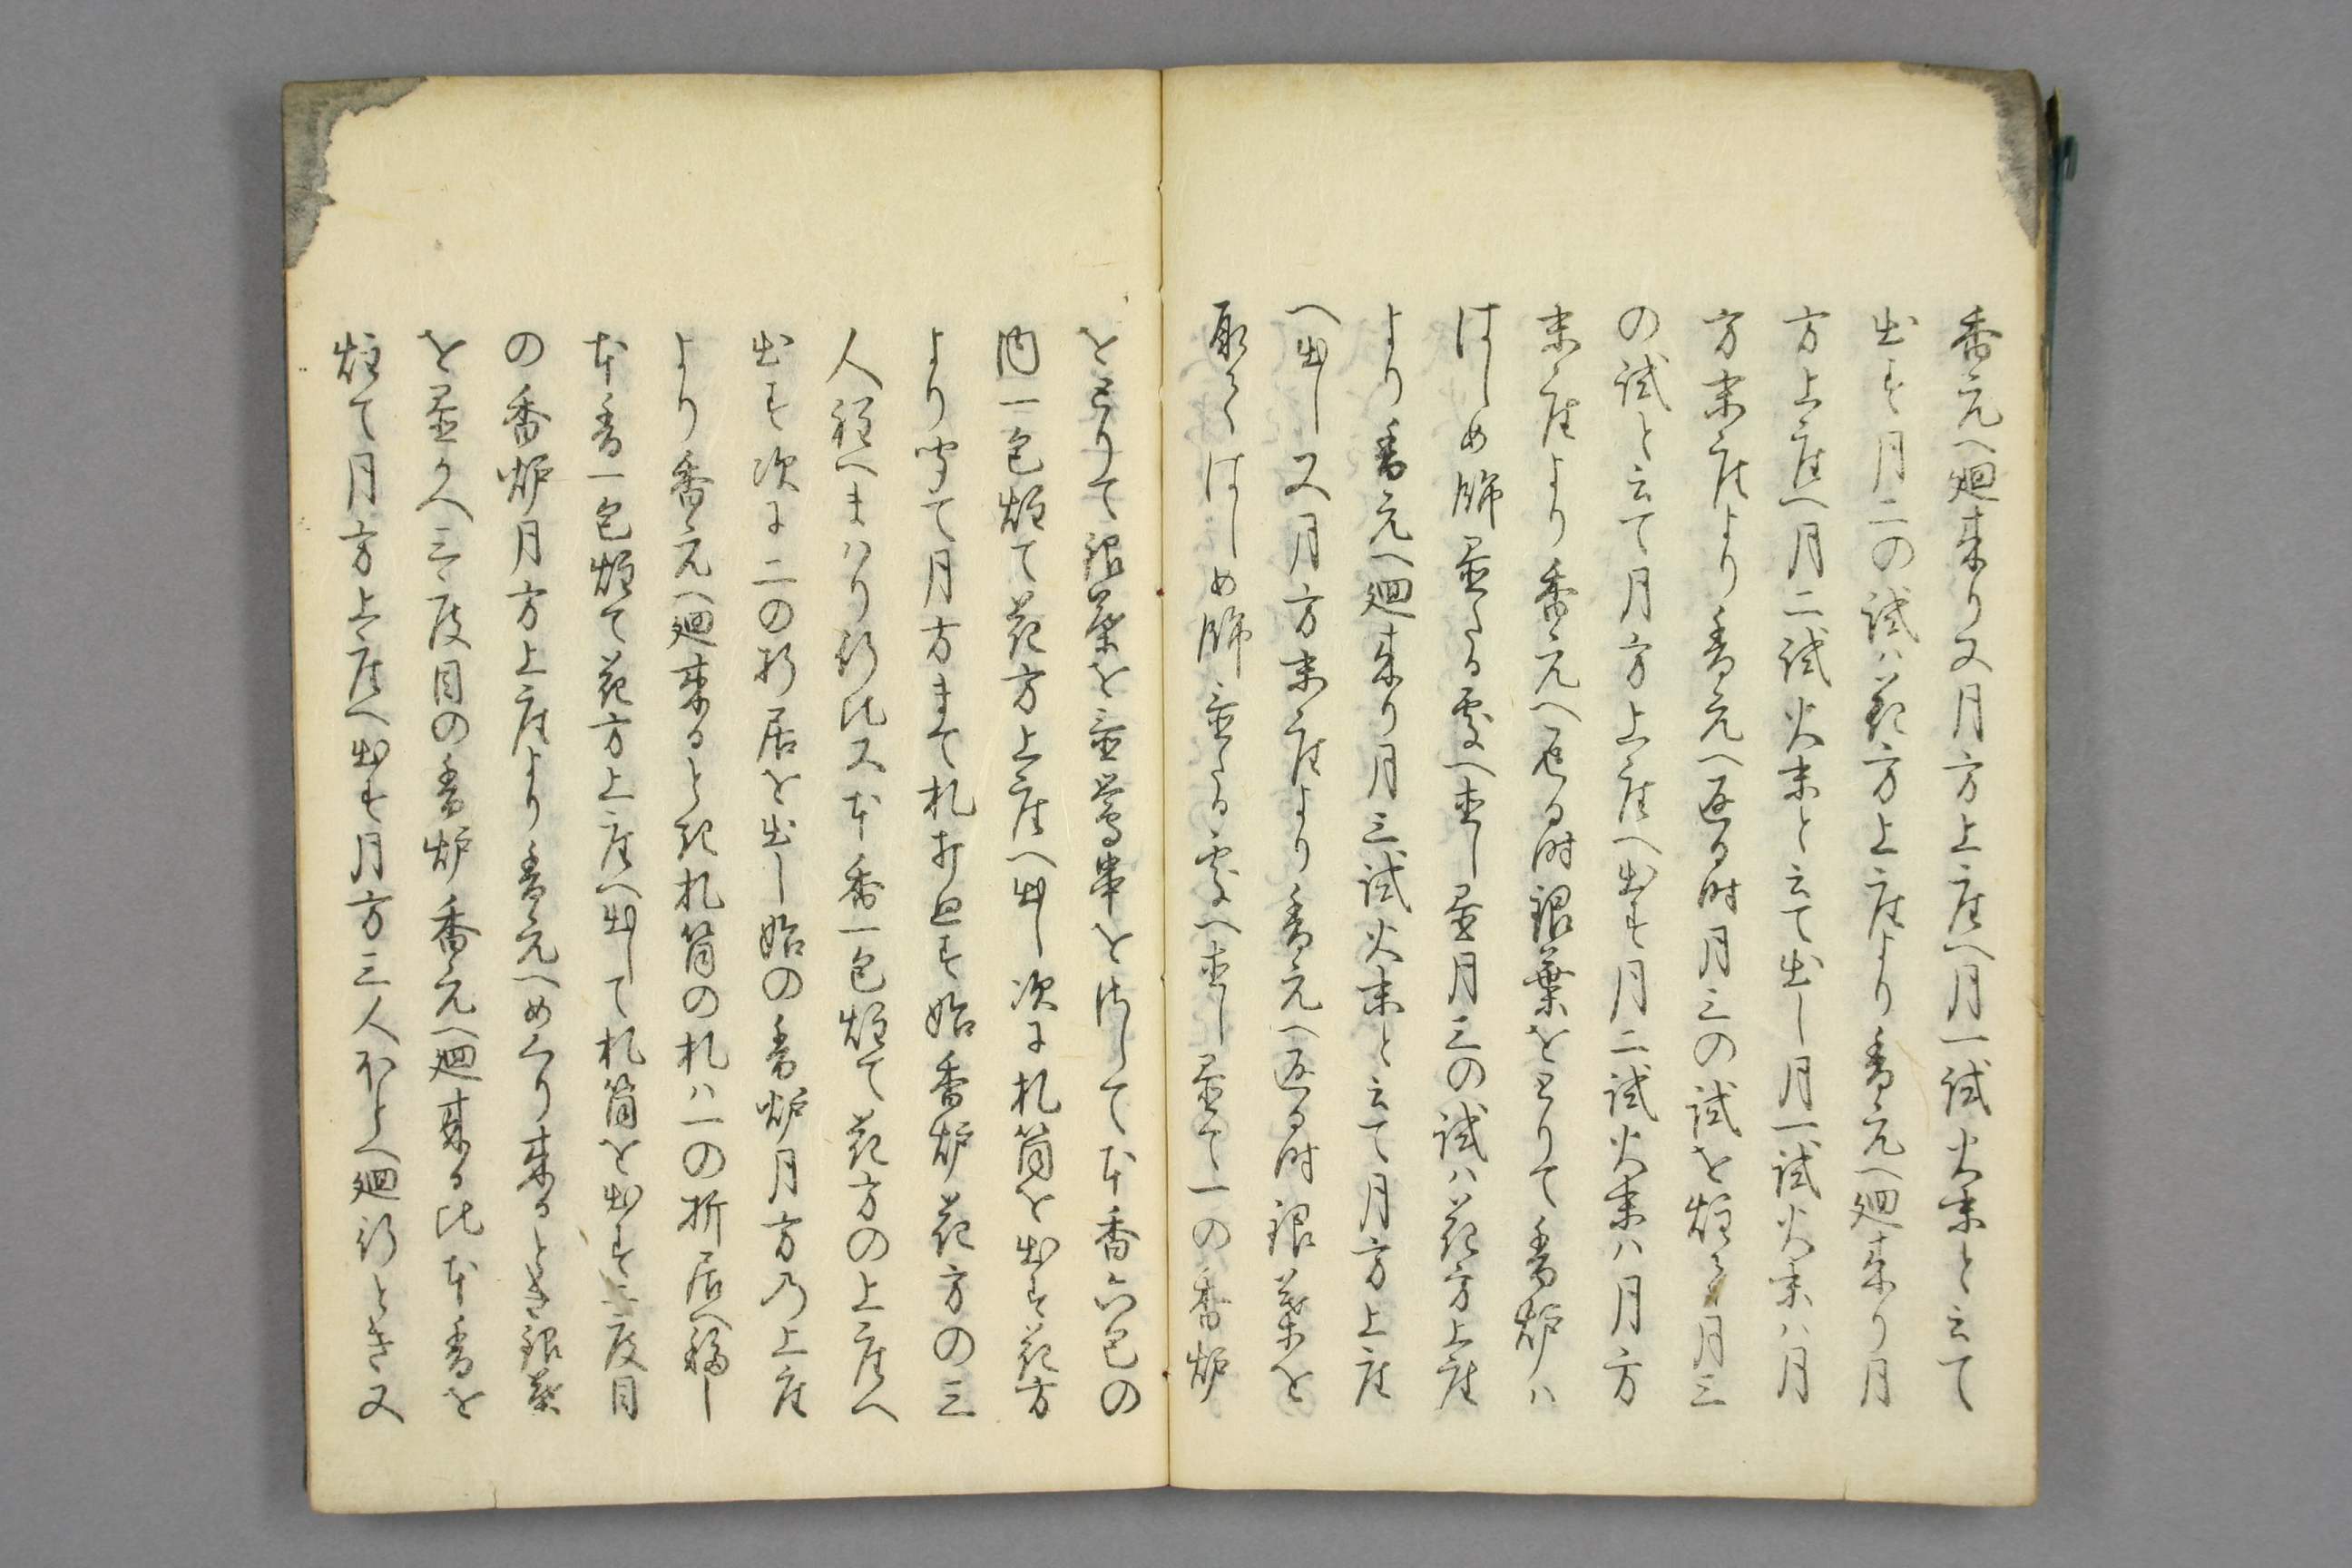 香元へ廻来り又月方上座へ月一試火末と云て
出す月二の試ハ花方上座より香元へ廻来り月
方上座へ月二試火末と云て出し月一試火末ハ月
方末座より香元へ返る時月三の試を炷く月三
の試と云て月方上座へ出す月二試火末ハ月方
末座より香元へ返る時銀葉をとりて香炉ハ
はしめ餝置たる処へ直し置月三の試ハ花方上座
より香元へ廻来り月三試火末と云て月方上座
へ出し又月方末座より香元へ返る時銀葉を
取てはしめ餝置たる処へ直し置て一の香炉
をとりて銀葉を置鶯串をさして本香六包の
内一包炷て花方上座へ出し次に札筒を出す花方
より聞て月方まて札打也始香炉花方の三
人程へまハり行比又本香一包炷て花方の上座へ
出す次に二の折居を出し始の香炉月方乃上座
より香元へ廻来るとき札筒の札ハ一の折居へ移し
本香一包炷て花方上座へ出して札筒を出す二度目
の香炉月方上座より香元へめくり来るとき銀葉
を置かへ三度目の香炉香元へ廻来る比本香を
炷て月方上座へ出す月方三人ほとへ廻行とき又